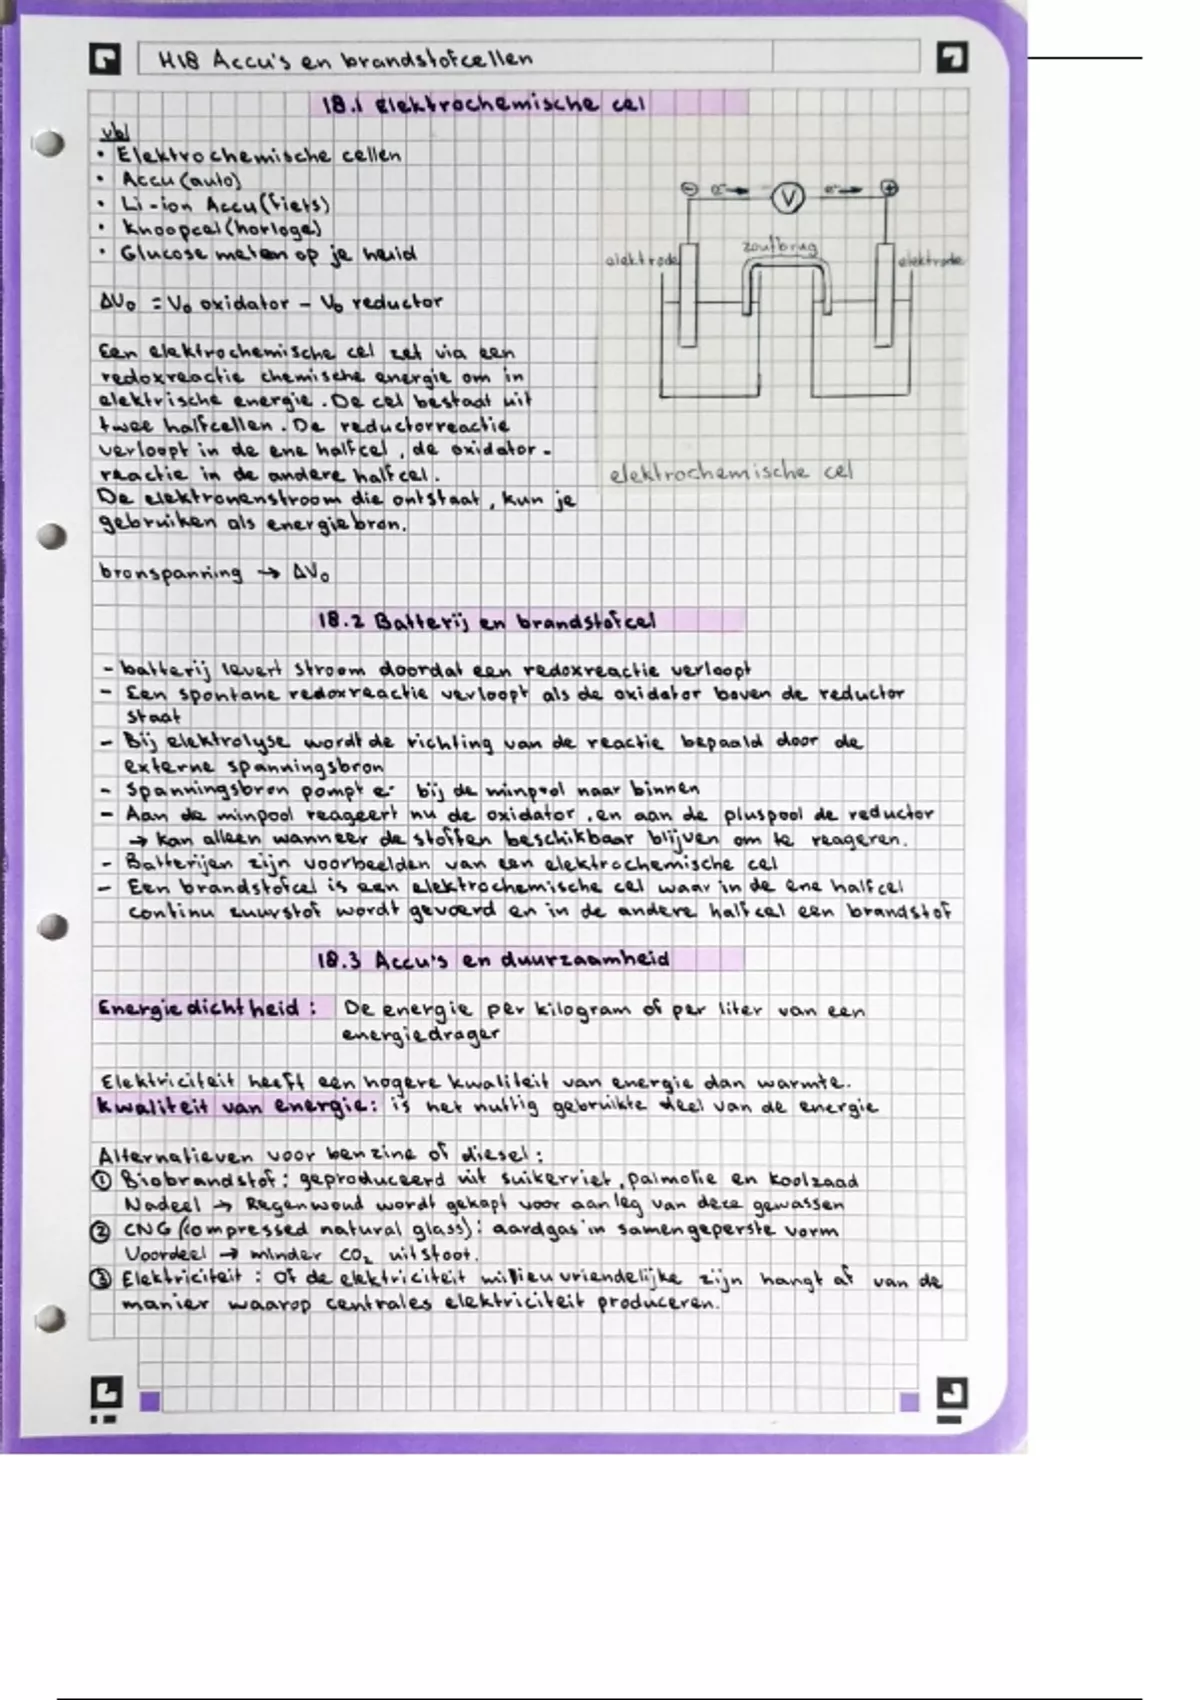 H18 Accu's en brandstofcellen
18.1 Elektrochemische cel
vb/
• Elektrochemische cellen
• Accu (auto)
• Li-ion Accu (fiets)
• Knoopcel (horloge)
• Glucose meten op je huid
ΔV₀ = V₀ oxidator - V₀ reductor
Een elektrochemische cel zet via een
redoxreactie chemische energie om in
elektrische energie. De cel bestaat uit
twee halfcellen. De reductorreactie
verloopt in de ene halfcel, de oxidator-
reactie in de andere halfcel.
De elektronenstroom die ontstaat, kun je
gebruiken als energiebron.
bronspanning → ΔV₀
⊖ e⁻→ V e⁻→ ⊕
zoutbrug
elektrode elektrode
elektrochemische cel
18.2 Batterij en brandstofcel
- batterij levert stroom doordat een redoxreactie verloopt
- Een spontane redoxreactie verloopt als de oxidator boven de reductor
staat
- Bij elektrolyse wordt de richting van de reactie bepaald door de
externe spanningsbron
- Spanningsbron pompt e⁻ bij de minpool naar binnen
- Aan de minpool reageert nu de oxidator, en aan de pluspool de reductor
→ kan alleen wanneer de stoffen beschikbaar blijven om te reageren.
- Batterijen zijn voorbeelden van een elektrochemische cel
- Een brandstofcel is een elektrochemische cel waar in de ene halfcel
continu zuurstof wordt gevoerd en in de andere halfcel een brandstof
18.3 Accu's en duurzaamheid
Energiedichtheid: De energie per kilogram of per liter van een
energiedrager
Elektriciteit heeft een hogere kwaliteit van energie dan warmte.
Kwaliteit van energie: is het nuttig gebruikte deel van de energie
Alternatieven voor benzine of diesel:
① Biobrandstof: geproduceerd uit suikerriet, palmolie en koolzaad
Nadeel → Regenwoud wordt gekapt voor aanleg van deze gewassen
② CNG (compressed natural glass): aardgas in samengeperste vorm
Voordeel → minder CO₂ uitstoot.
③ Elektriciteit: Of de elektriciteit milieuvriendelijke zijn hangt af van de
manier waarop centrales elektriciteit produceren.